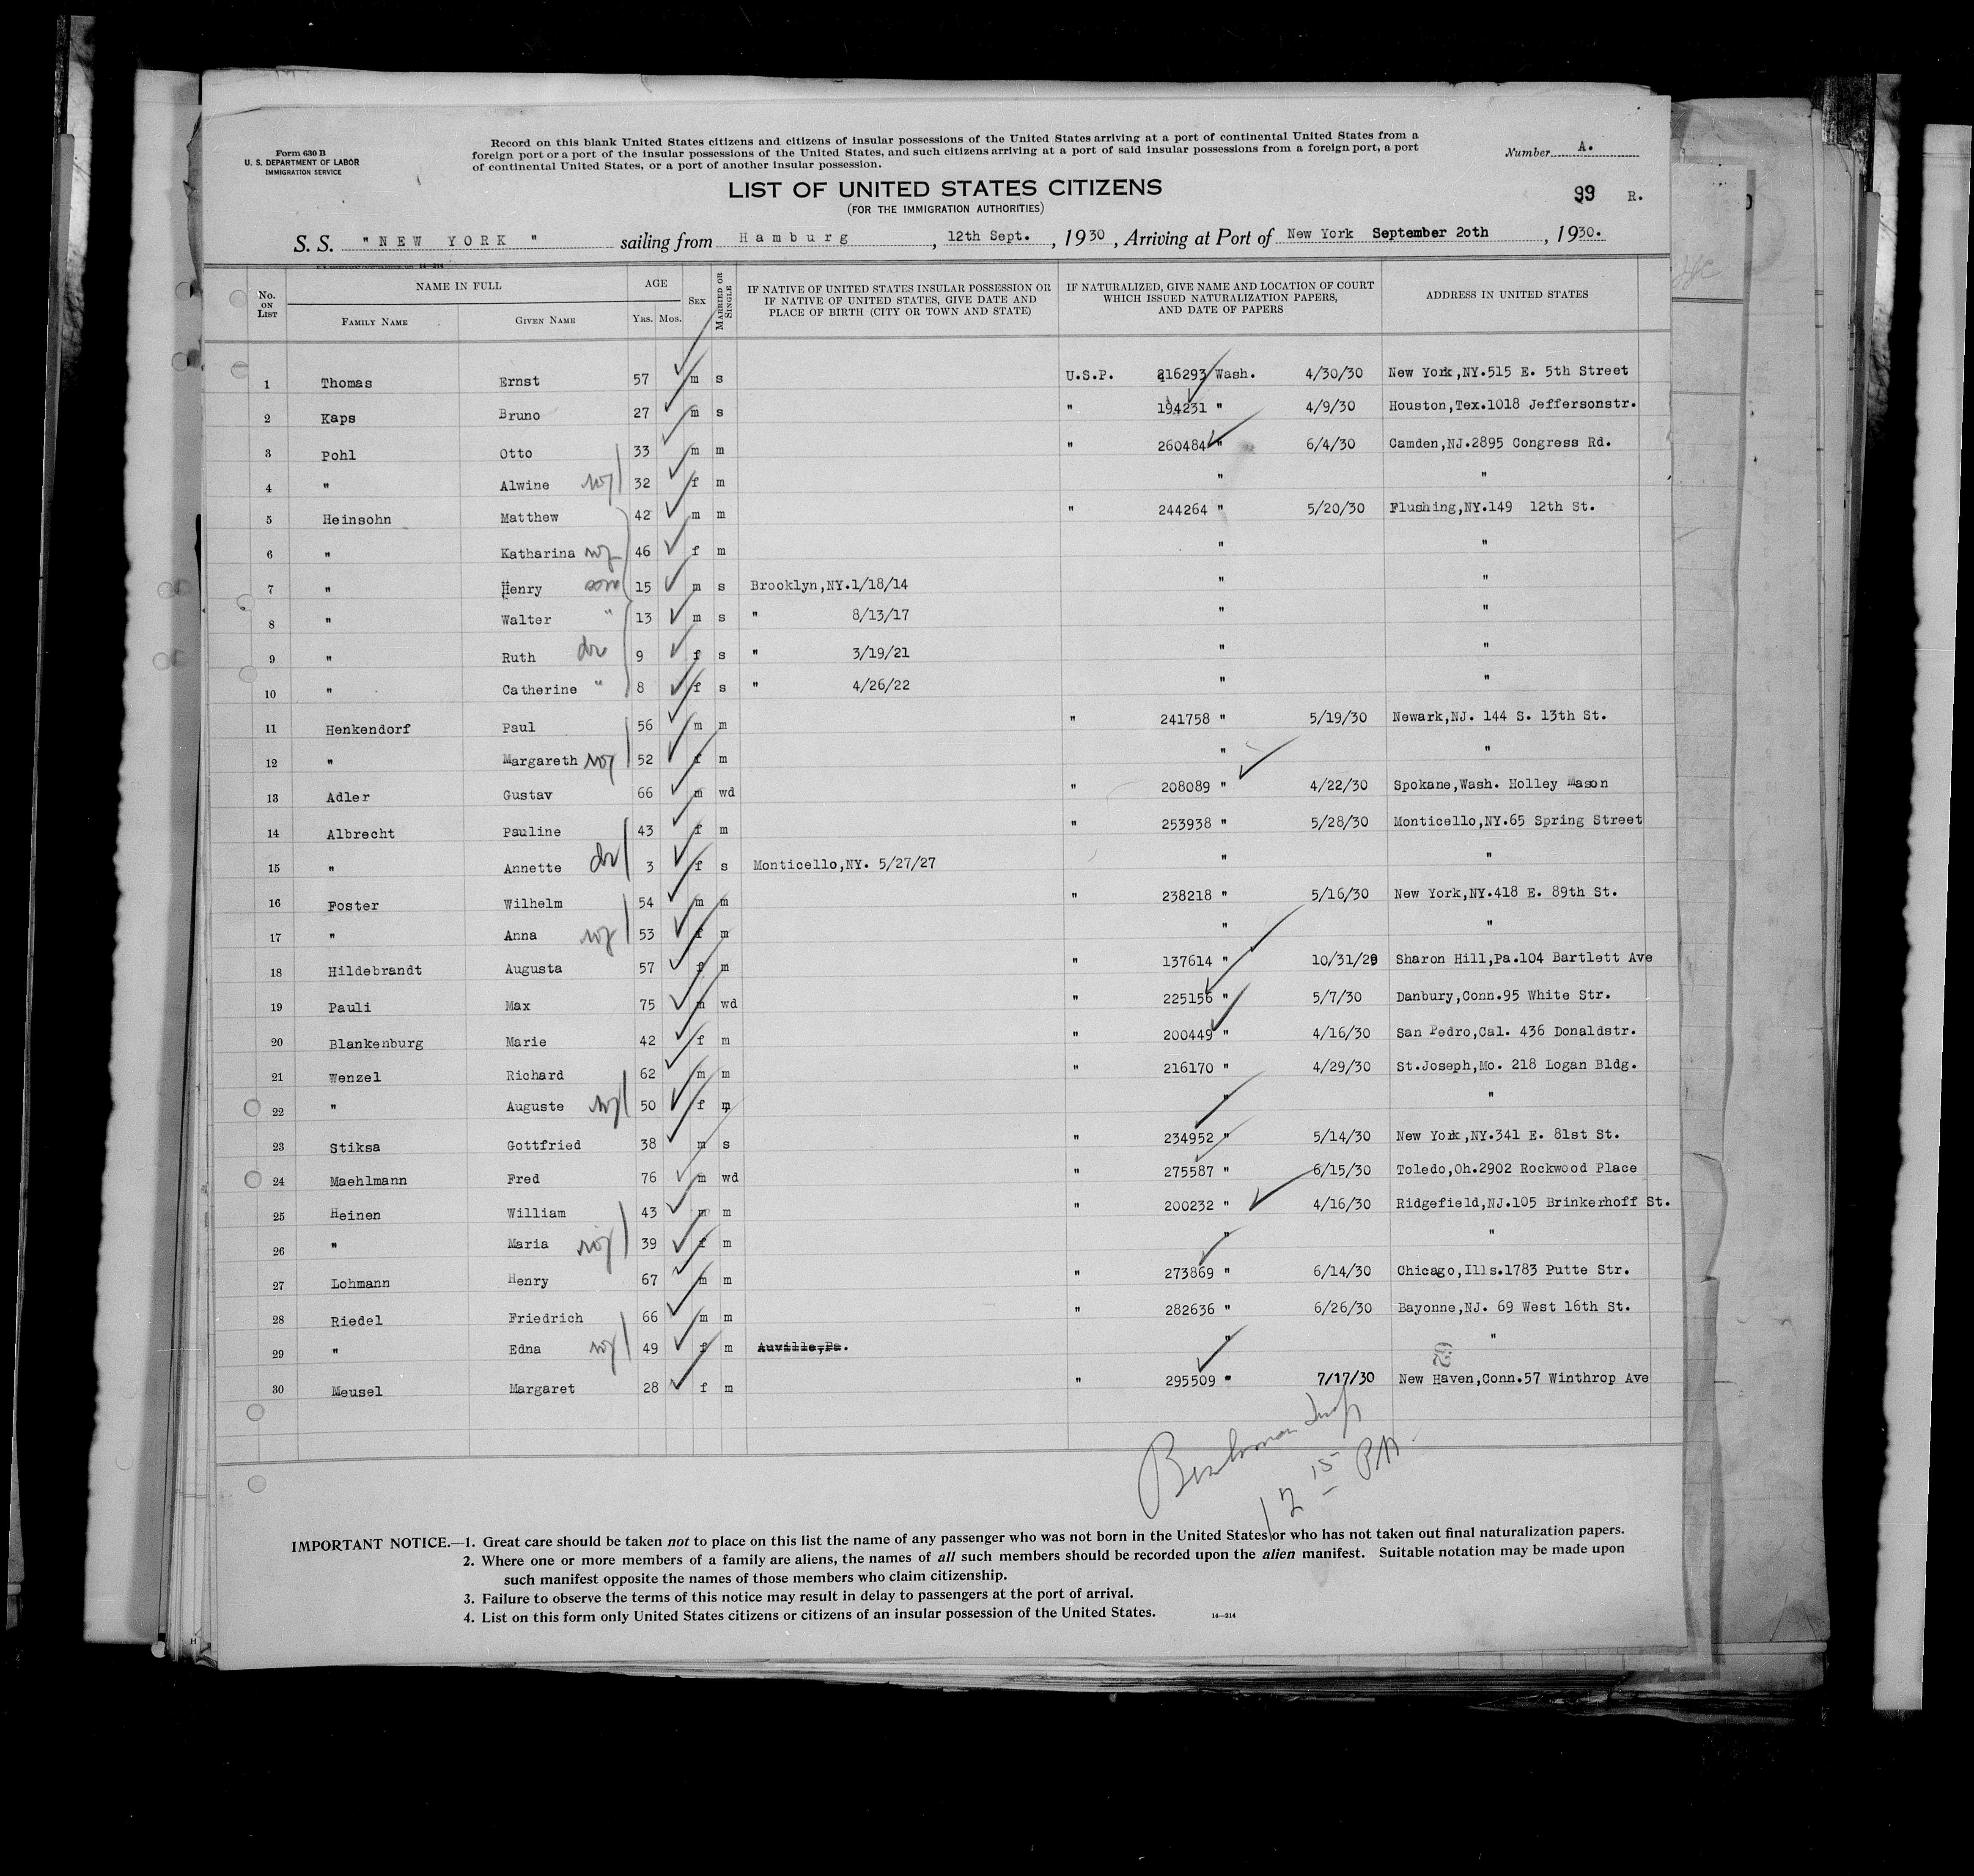 Form 630 B
U. S. DEPARTMENT OF LABOR
IMMIGRATION SERVICE
Record on this blank United States citizens and citizens of insular possessions of the United States arriving at a port of continental United States from a
foreign port or a port of the insular possessions of the United States, and such citizens arriving at a port of said insular possessions from a foreign port, a port
of continental United States, or a port of another insular possession.
Number A.
LIST OF UNITED STATES CITIZENS
(FOR THE IMMIGRATION AUTHORITIES)
99 R.
S. S. "NEW YORK" sailing from Hamburg, 12th Sept., 1930, Arriving at Port of New York September 20th, 1930.
No. ON LIST NAME IN FULL AGE SEX MARRIED OR SINGLE IF NATIVE OF UNITED STATES INSULAR POSSESSION OR IF NATIVE OF UNITED STATES, GIVE DATE AND PLACE OF BIRTH (CITY OR TOWN AND STATE) IF NATURALIZED, GIVE NAME AND LOCATION OF COURT WHICH ISSUED NATURALIZATION PAPERS, AND DATE OF PAPERS ADDRESS IN UNITED STATES
FAMILY NAME GIVEN NAME YRS. MOS.
1 Thomas Ernst 57 m s U.S.P. 216293 Wash. 4/30/30 New York,NY.515 E. 5th Street
2 Kaps Bruno 27 m s " 194231 " 4/9/30 Houston,Tex.1018 Jeffersonstr.
3 Pohl Otto 33 m m " 260484 " 6/4/30 Camden,NJ.2895 Congress Rd.
4 " Alwine wf 32 f m " "
5 Heinsohn Matthew 42 m m " 244264 " 5/20/30 Flushing,NY.149 12th St.
6 " Katharina wf 46 f m " "
7 " Henry son 15 m s Brooklyn,NY.1/18/14 " "
8 " Walter " 13 m s " 8/13/17 " "
9 " Ruth dr 9 f s " 3/19/21 " "
10 " Catherine " 8 f s " 4/26/22 " "
11 Henkendorf Paul 56 m m " 241758 " 5/19/30 Newark,NJ. 144 S. 13th St.
12 " Margareth wf 52 f m " "
13 Adler Gustav 66 m wd " 208089 " 4/22/30 Spokane,Wash. Holley Mason
14 Albrecht Pauline 43 f m " 253938 " 5/28/30 Monticello,NY.65 Spring Street
15 " Annette dr 3 f s Monticello,NY. 5/27/27 " "
16 Foster Wilhelm 54 m m " 238218 " 5/16/30 New York,NY.418 E. 89th St.
17 " Anna wf 53 f m " "
18 Hildebrandt Augusta 57 f m " 137614 " Sharon Hill,Pa.104 Bartlett Ave
19 Pauli Max 75 m wd " 225156 " 5/7/30 Danbury,Conn.95 White Str.
20 Blankenburg Marie 42 f m " 200449 " 4/16/30 San Pedro,Cal. 436 Donaldstr.
21 Wenzel Richard 62 m m " 216170 " 4/29/30 St.Joseph,Mo. 218 Logan Bldg.
22 " Auguste wf 50 f m " "
23 Stiksa Gottfried 38 m s " 234952 " 5/14/30 New York,NY.341 E. 81st St.
24 Maehlmann Fred 76 m wd " 275587 " 6/15/30 Toledo,Oh.2902 Rockwood Place
25 Heinen William 43 m m " 200232 " 4/16/30 Ridgefield,NJ.105 Brinkerhoff St.
26 " Maria wf 39 f m " "
27 Lohmann Henry 67 m m " 273869 " 6/14/30 Chicago,Ills.1783 Putte Str.
28 Riedel Friedrich 66 m m " 282636 " 6/26/30 Bayonne,NJ. 69 West 16th St.
29 " Edna wf 49 f m Auville,Pa. " "
30 Meusel Margaret 28 f m " 295509 " 7/17/30 New Haven,Conn.57 Winthrop Ave
12 15 PM
IMPORTANT NOTICE.—1. Great care should be taken not to place on this list the name of any passenger who was not born in the United States or who has not taken out final naturalization papers.
2. Where one or more members of a family are aliens, the names of all such members should be recorded upon the alien manifest. Suitable notation may be made upon
such manifest opposite the names of those members who claim citizenship.
3. Failure to observe the terms of this notice may result in delay to passengers at the port of arrival.
4. List on this form only United States citizens or citizens of an insular possession of the United States.
14—214